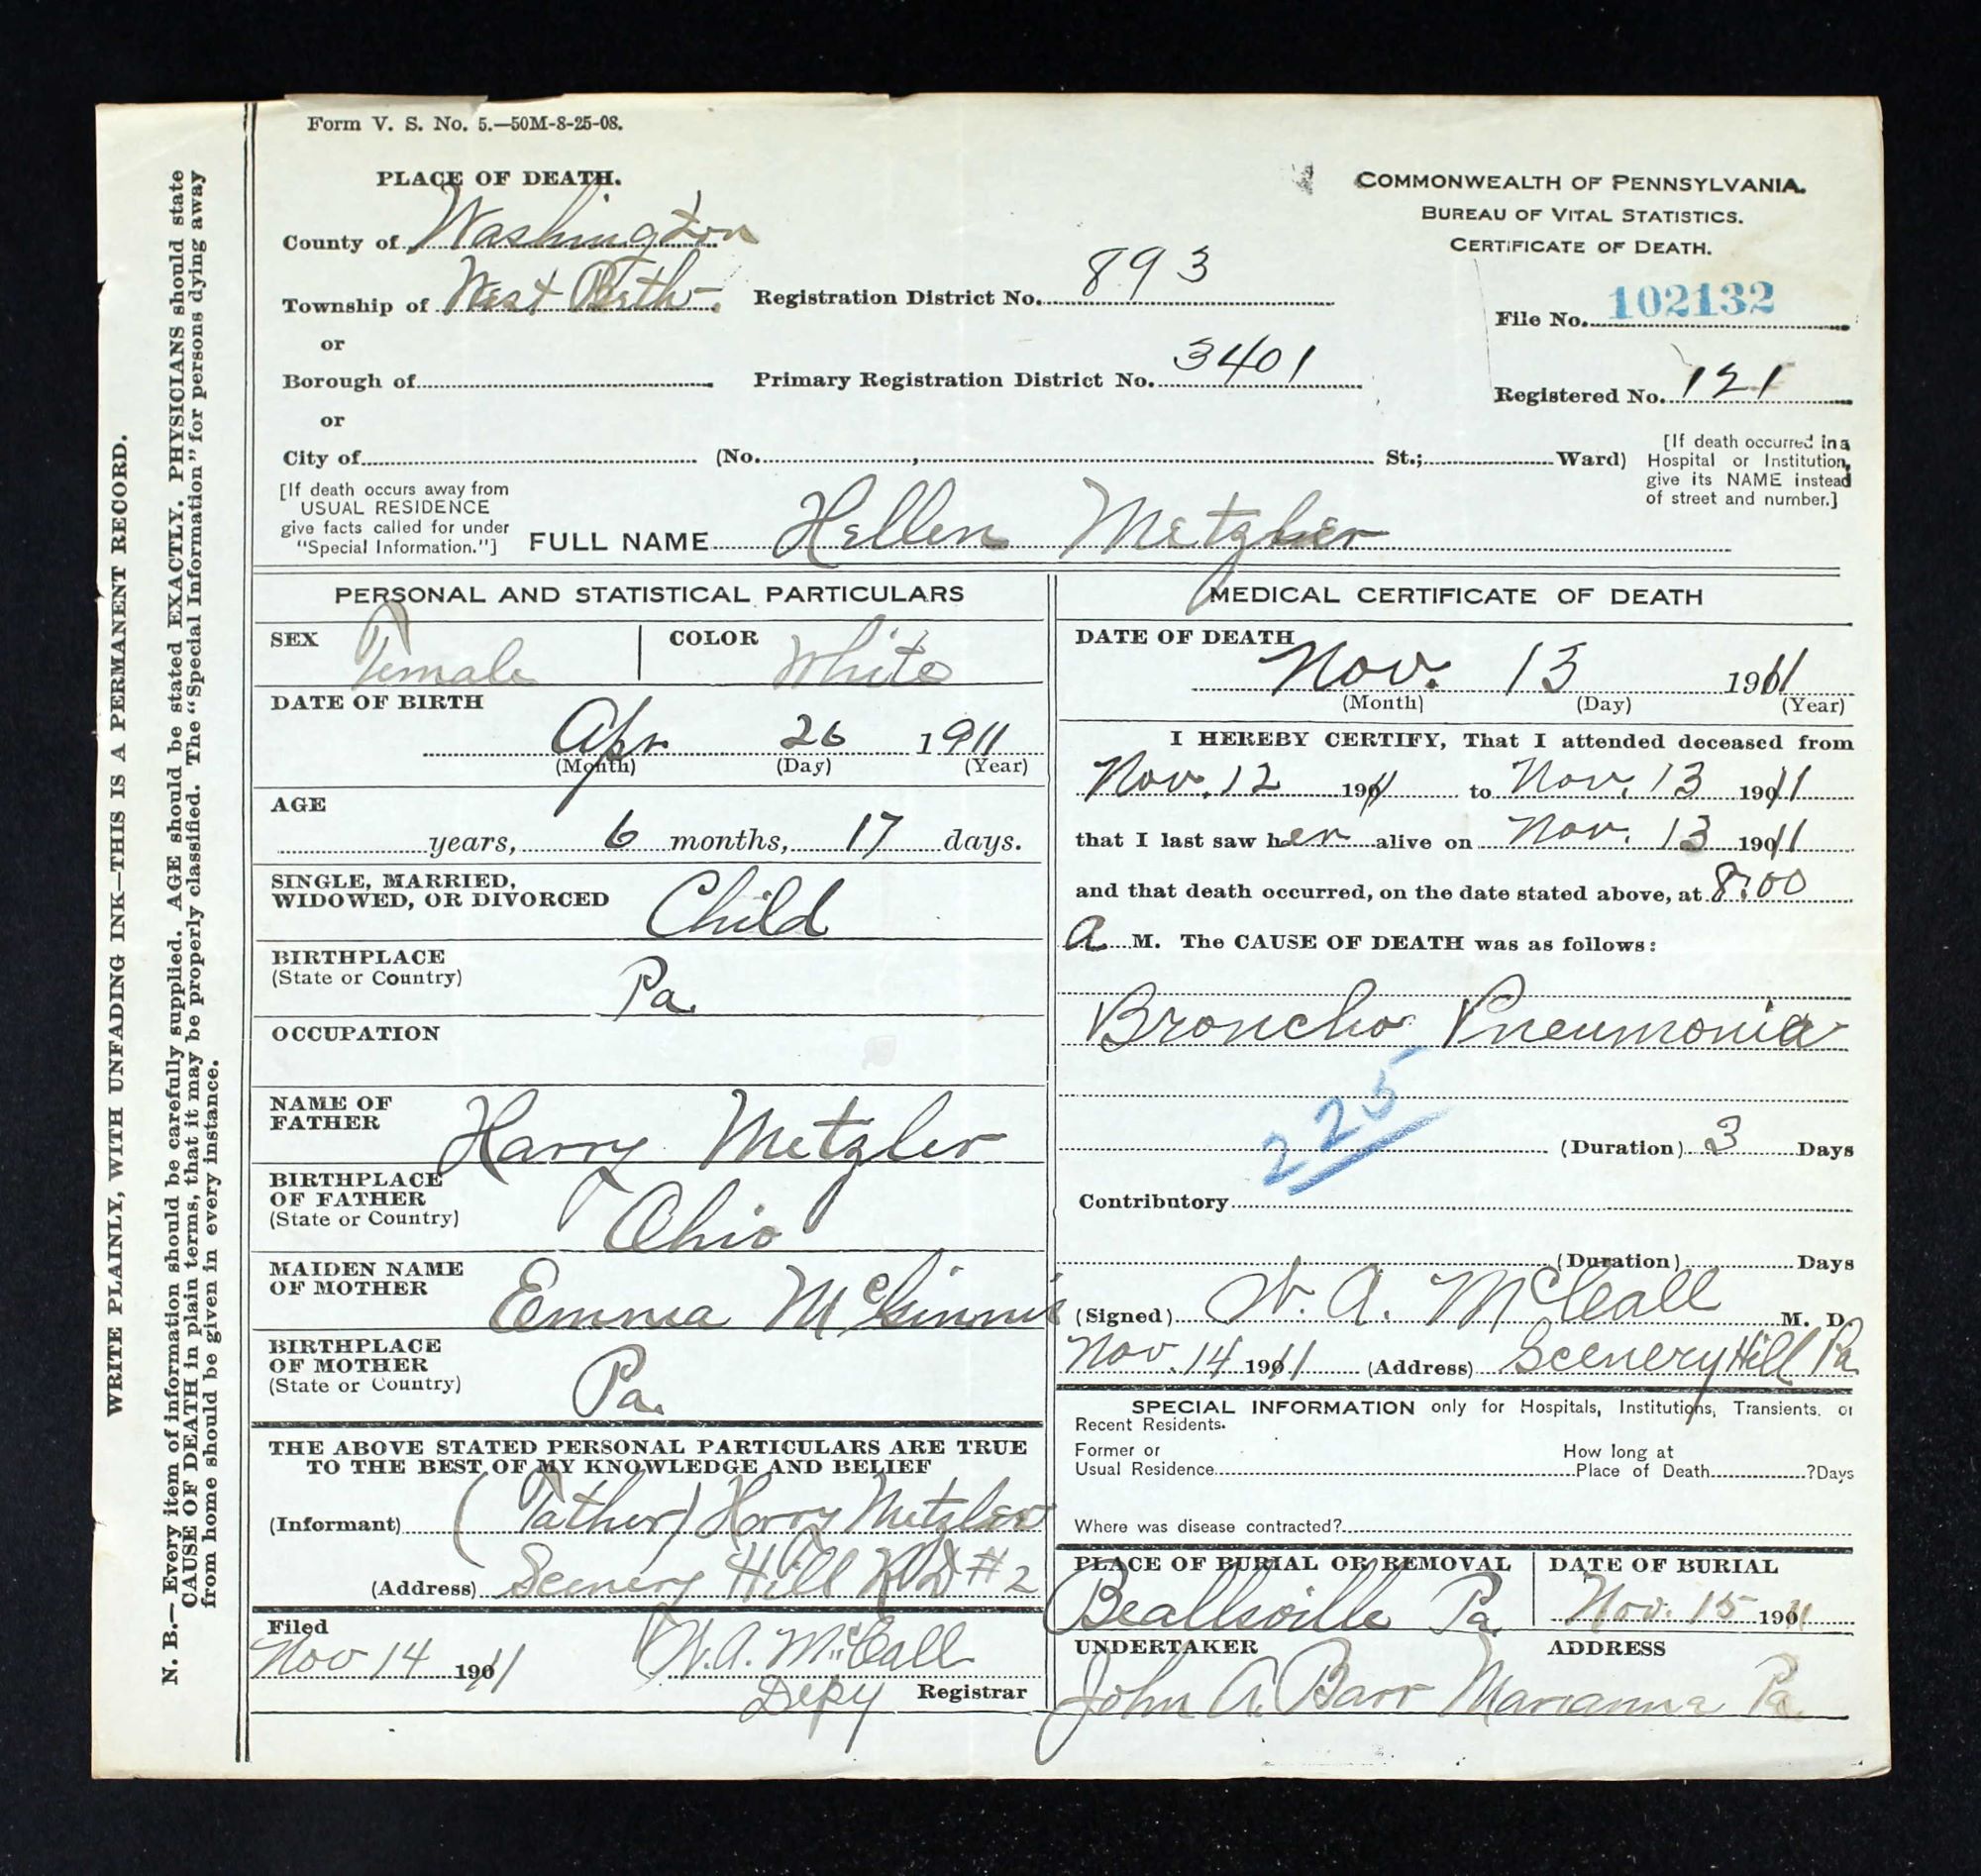 Form V. S. No. 5.—50M-8-25-08.
PLACE OF DEATH.
County of Washington
Township of West Beth-.
or
Borough of
or
City of (No. , St.; Ward)
Registration District No. 893
Primary Registration District No. 3401
COMMONWEALTH OF PENNSYLVANIA.
BUREAU OF VITAL STATISTICS.
CERTIFICATE OF DEATH.
File No. 102132
Registered No. 121
[If death occurred in a
Hospital or Institution,
give its NAME instead
of street and number.]
[If death occurs away from
USUAL RESIDENCE
give facts called for under
"Special Information."]
FULL NAME Hellen Metzler
PERSONAL AND STATISTICAL PARTICULARS
SEX Female
COLOR White
DATE OF BIRTH
Apr 26 1911
(Month) (Day) (Year)
AGE
years, 6 months, 17 days.
SINGLE, MARRIED,
WIDOWED, OR DIVORCED Child
BIRTHPLACE
(State or Country) Pa.
OCCUPATION
NAME OF
FATHER Harry Metzler
BIRTHPLACE
OF FATHER
(State or Country) Ohio
MAIDEN NAME
OF MOTHER Emma McGinnis
BIRTHPLACE
OF MOTHER
(State or Country) Pa.
THE ABOVE STATED PERSONAL PARTICULARS ARE TRUE
TO THE BEST OF MY KNOWLEDGE AND BELIEF
(Informant) (Father) Harry Metzler
(Address) Scenery Hill RD #2
Filed
Nov 14 1911 W. A. McCall
Depy Registrar
MEDICAL CERTIFICATE OF DEATH
DATE OF DEATH
Nov. 13 1911
(Month) (Day) (Year)
I HEREBY CERTIFY, That I attended deceased from
Nov. 12 1911 to Nov. 13 1911
that I last saw her alive on Nov. 13 1911
and that death occurred, on the date stated above, at 8:00
a M. The CAUSE OF DEATH was as follows:
Broncho Pneumonia
225
(Duration) 3 Days
Contributory
(Duration) Days
(Signed) W. A. McCall M. D.
Nov. 14 1911 (Address) Scenery Hill Pa
SPECIAL INFORMATION only for Hospitals, Institutions, Transients, or
Recent Residents.
Former or
Usual Residence
How long at
Place of Death ?Days
Where was disease contracted?
PLACE OF BURIAL OR REMOVAL
Beallsville Pa.
DATE OF BURIAL
Nov. 15 1911
UNDERTAKER ADDRESS
John A. Barr Marianna Pa.
WRITE PLAINLY, WITH UNFADING INK—THIS IS A PERMANENT RECORD.
N. B.—Every item of information should be carefully supplied. AGE should be stated EXACTLY. PHYSICIANS should state
CAUSE OF DEATH in plain terms, that it may be properly classified. The "Special Information" for persons dying away
from home should be given in every instance.